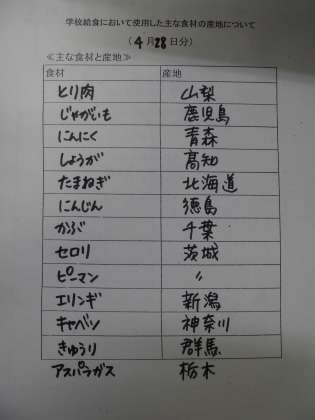 学校給食において使用した主な食材の産地について
(4月28日分)
≪主な食材と産地≫
食材 産地
とり肉 山梨
じゃがいも 鹿児島
にんにく 青森
しょうが 高知
たまねぎ 北海道
にんじん 徳島
かぶ 千葉
セロリ 茨城
ピーマン 〃
エリンギ 新潟
キャベツ 神奈川
きゅうり 群馬
アスパラガス 栃木